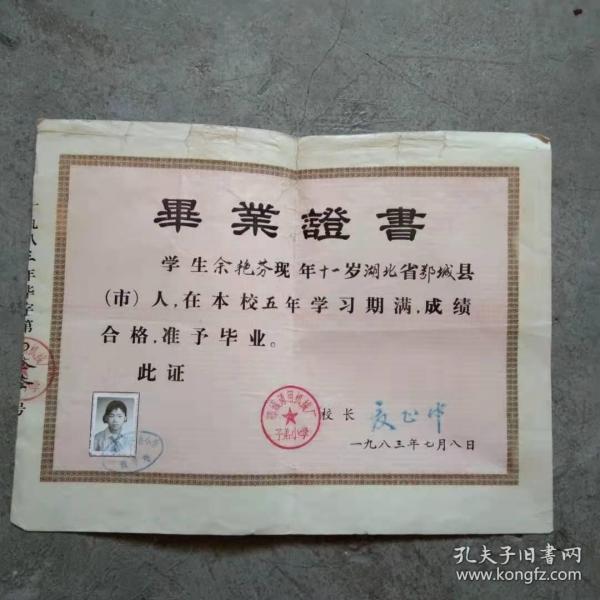 畢業證書
学生余艳芬现年十一岁湖北省鄂城县
(市)人,在本校五年学习期满,成绩
合格,准予毕业。
此证
校长
一九八三年七月八日
子弟小学
一九八三年毕字第
号
孔夫子旧书网
www.kongfz.com